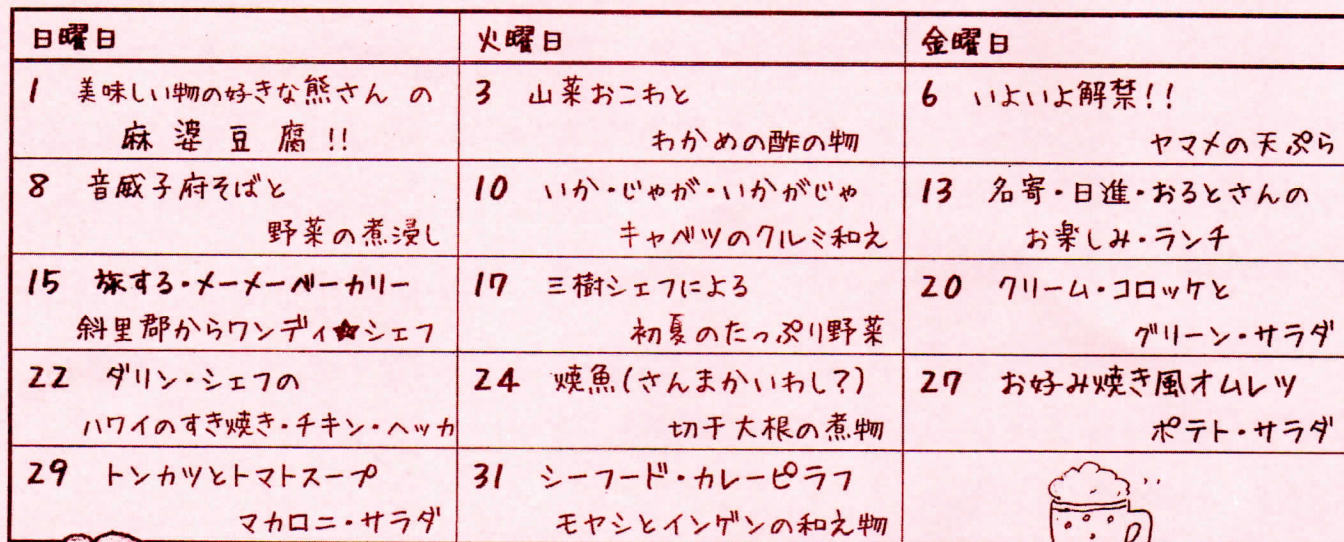 日曜日
火曜日
金曜日
1 美味しい物の好きな熊さん の
麻婆豆腐!!
3 山菜おこわと
わかめの酢の物
6 いよいよ解禁!!
ヤマメの天ぷら
8 音威子府そばと
野菜の煮浸し
10 いか・じゃが・いかがじゃ
キャベツのクルミ和え
13 名寄・日進・おるとさんの
お楽しみ・ランチ
15 旅する・メーメーベーカリー
斜里郡からワンディ★シェフ
17 三樹シェフによる
初夏のたっぷり野菜
20 クリーム・コロッケと
グリーン・サラダ
22 ダリン・シェフの
ハワイのすき焼き・チキン・ヘッカ
24 焼魚(さんまかいわし?)
切干大根の煮物
27 お好み焼き風オムレツ
ポテト・サラダ
29 トンカツとトマトスープ
マカロニ・サラダ
31 シーフード・カレーピラフ
モヤシとインゲンの和え物